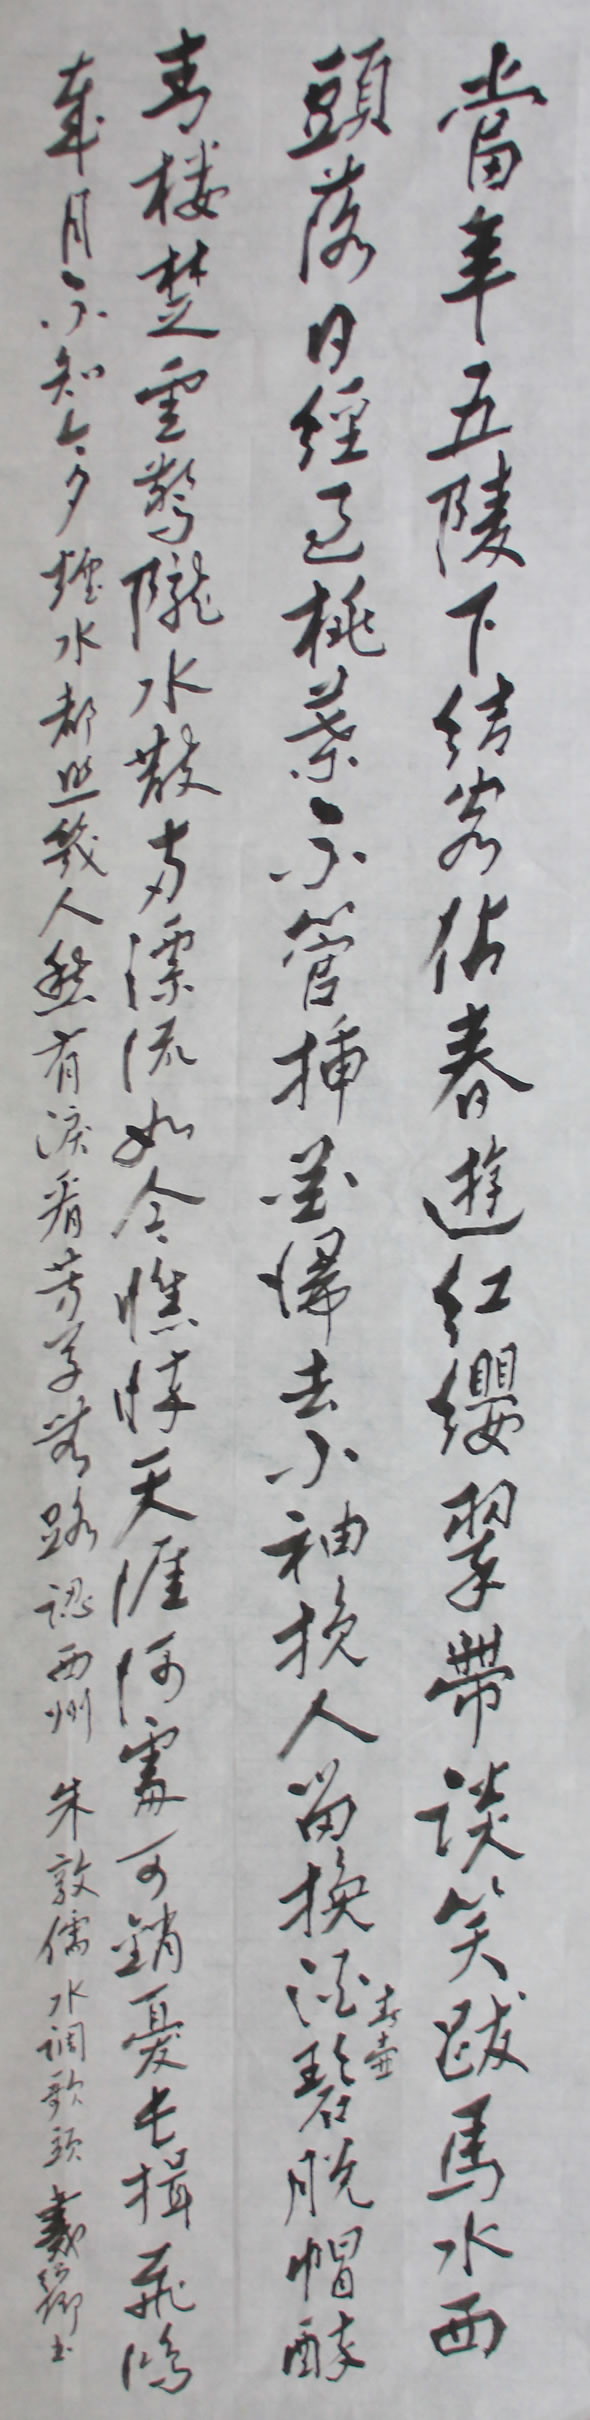 當年五陵下結客佔春遊紅纓翠帶談笑跋馬水西
頭落日經過桃葉不管插花歸去小袖挽人留換酒碧脫帽醉
春壺
青楼楚雲驚隴水散兩漂流如今憔悴天涯何處可銷憂長揖飛鴻
舊月不知今夕煙水都照幾人愁有淚看芳草無路認西州 朱敦儒水调歌頭 戴书